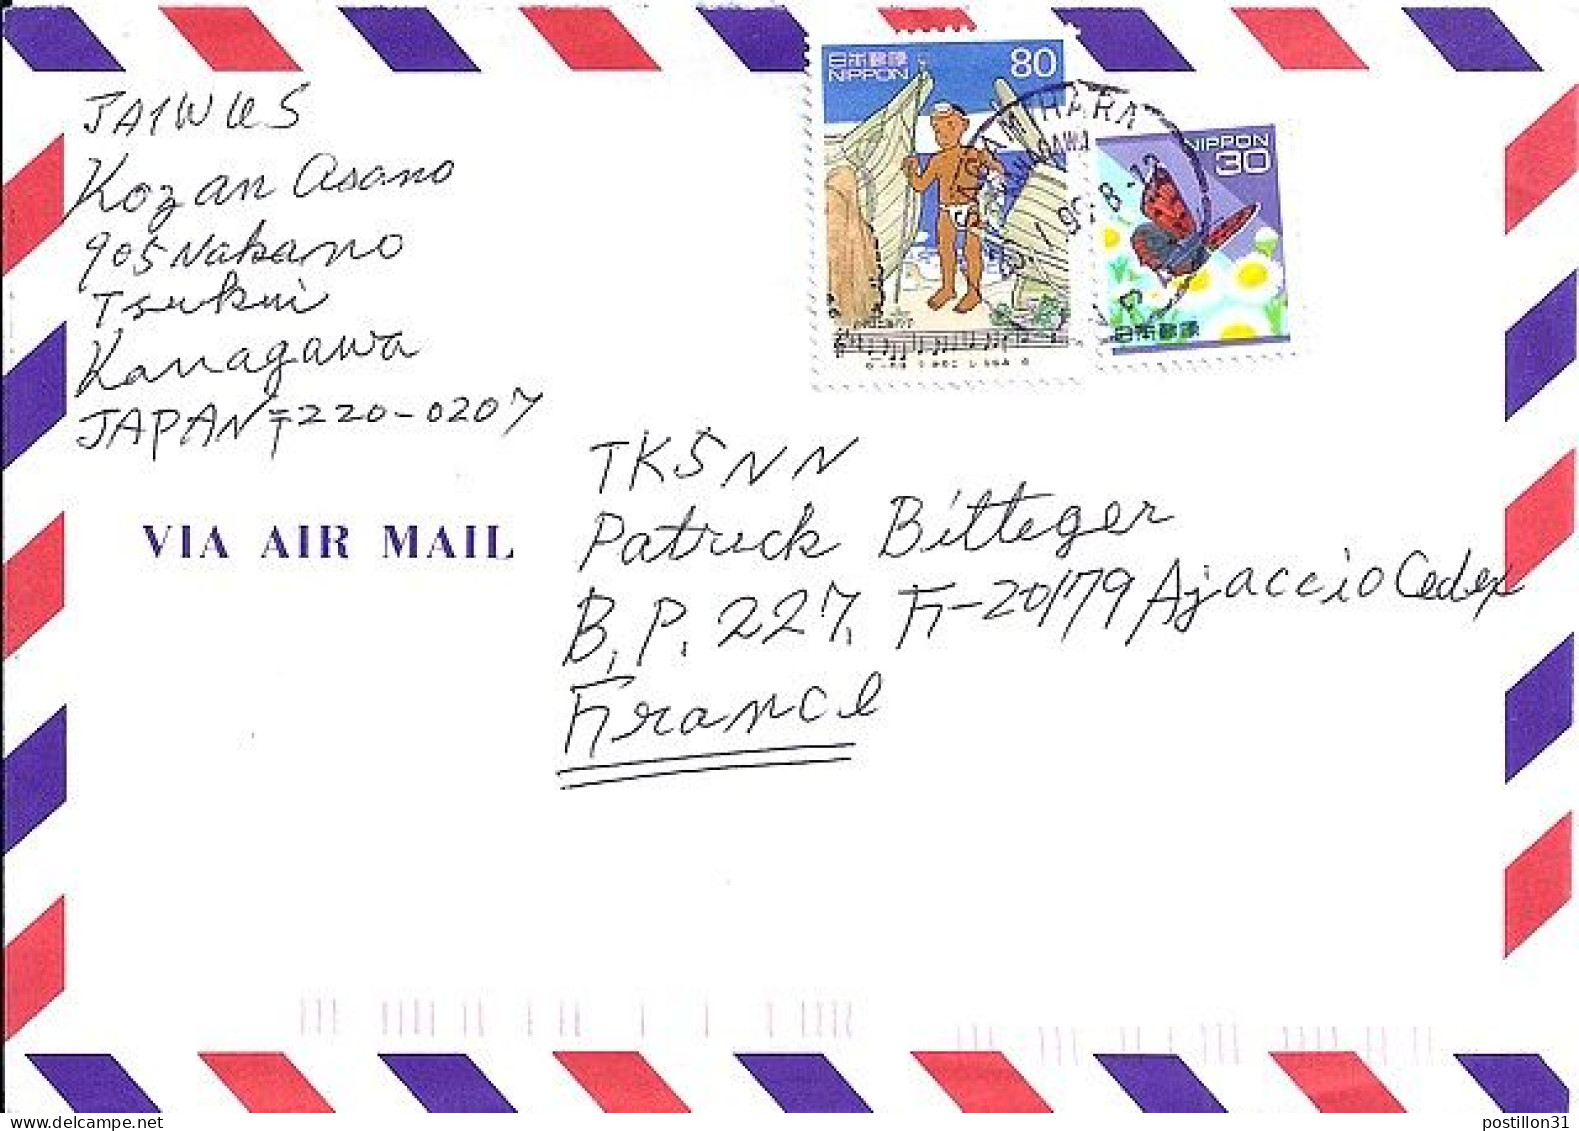 JA1WUS
Kozan Asano
905 Nakano
Tsukui
Kanagawa
JAPAN 〒220-0207
VIA AIR MAIL
日本郵便 80
NIPPON
NIPPON
30
日本郵便
TK5NN
Patrick Bitteger
B.P. 227, F-20179 Ajaccio Cedex
France
www.delcampe.net
postillon31